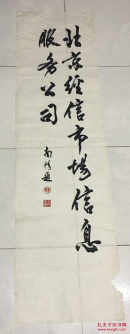 北京经信市场信息
服务公司